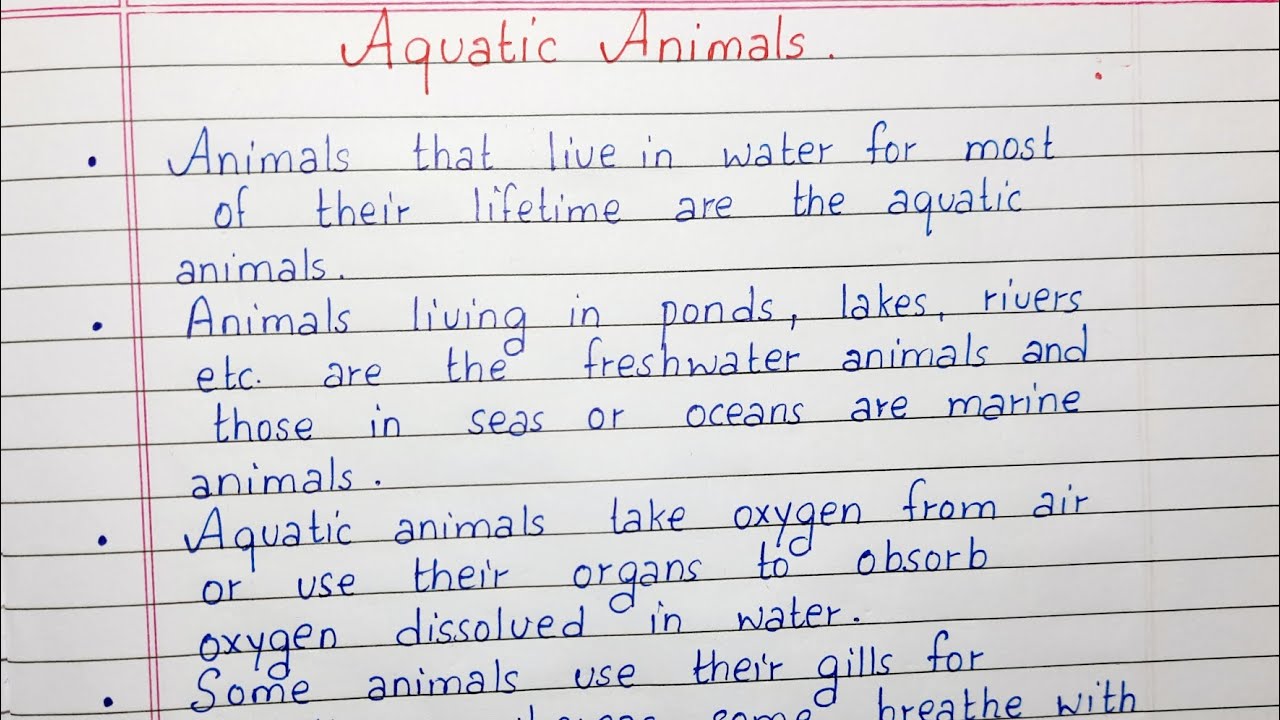 Aquatic Animals.
• Animals that live in water for most
of their lifetime are the aquatic
animals.
• Animals living in ponds, lakes, rivers
etc. are the freshwater animals and
those in seas or oceans are marine
animals.
• Aquatic animals take oxygen from air
or use their organs to absorb
oxygen dissolved in water.
• Some animals use their gills for
some breathe with